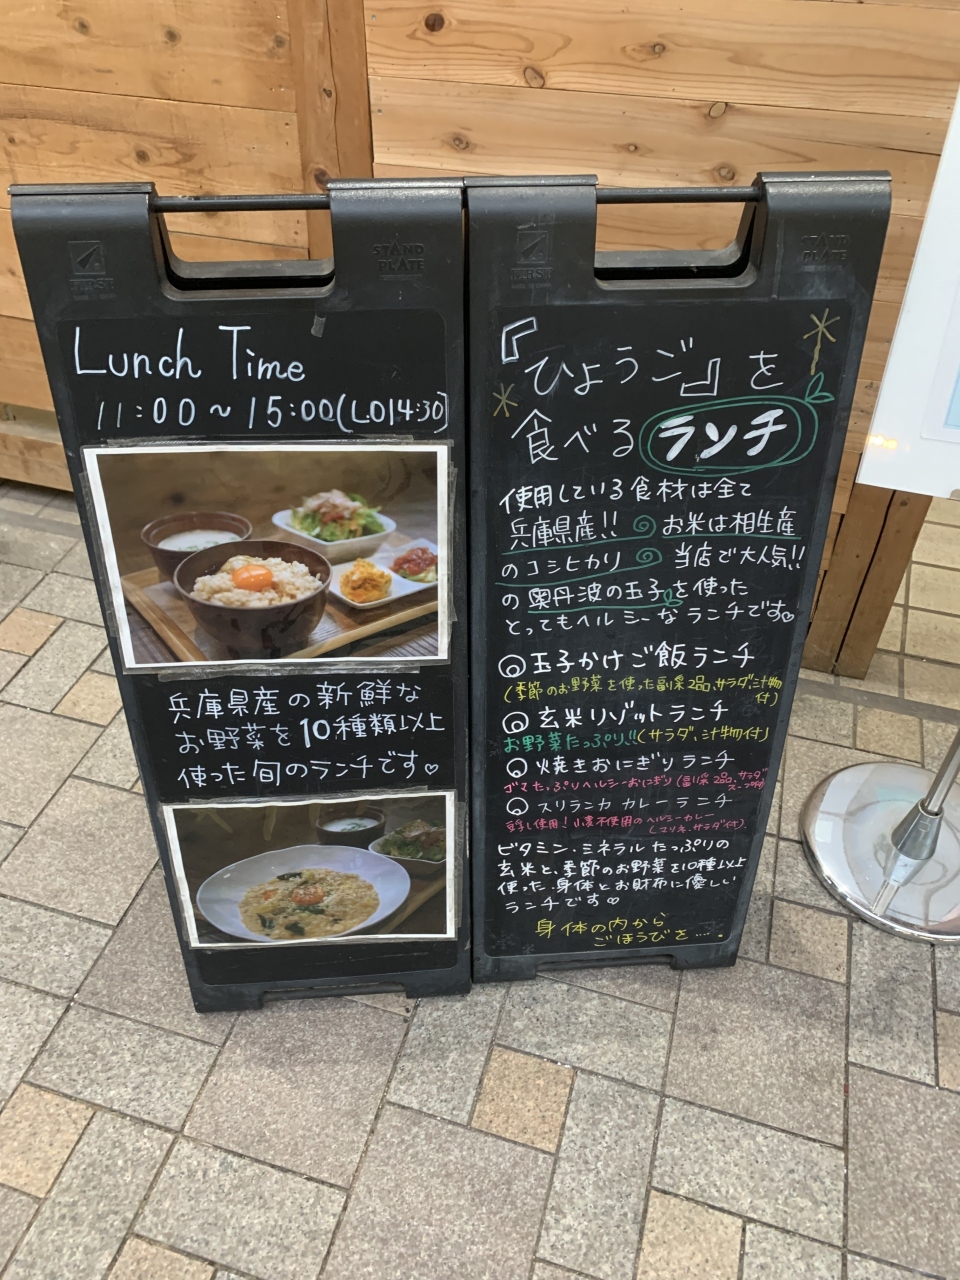 STAND
PLATE
FIRST
Lunch Time
11:00～15:00(LO14:30)
兵庫県産の新鮮な
お野菜を10種類以上
使った旬のランチです♡
FIRST
STAND
PLATE
『ひょうご』を
食べるランチ
使用している食材は全て
兵庫県産!! お米は相生産
のコシヒカリ 当店で大人気!!
の奥丹波の玉子を使った
とってもヘルシーなランチです♡
◎玉子かけご飯ランチ
(季節のお野菜を使った副菜2品、サラダ、汁物
付)
◎玄米リゾットランチ
お野菜たっぷり!!(サラダ、汁物付)
◎焼きおにぎりランチ
ゴマたっぷりヘルシーおにぎり(副菜2品、サラダ
スープ付)
◎スリランカカレーランチ
豆乳使用！小麦不使用のヘルシーカレー
サラダ付)
ビタミン・ミネラルたっぷりの
玄米と、季節のお野菜を10種以上
使った身体とお財布に優しい
ランチです♡
身体の内から
ごほうびを……